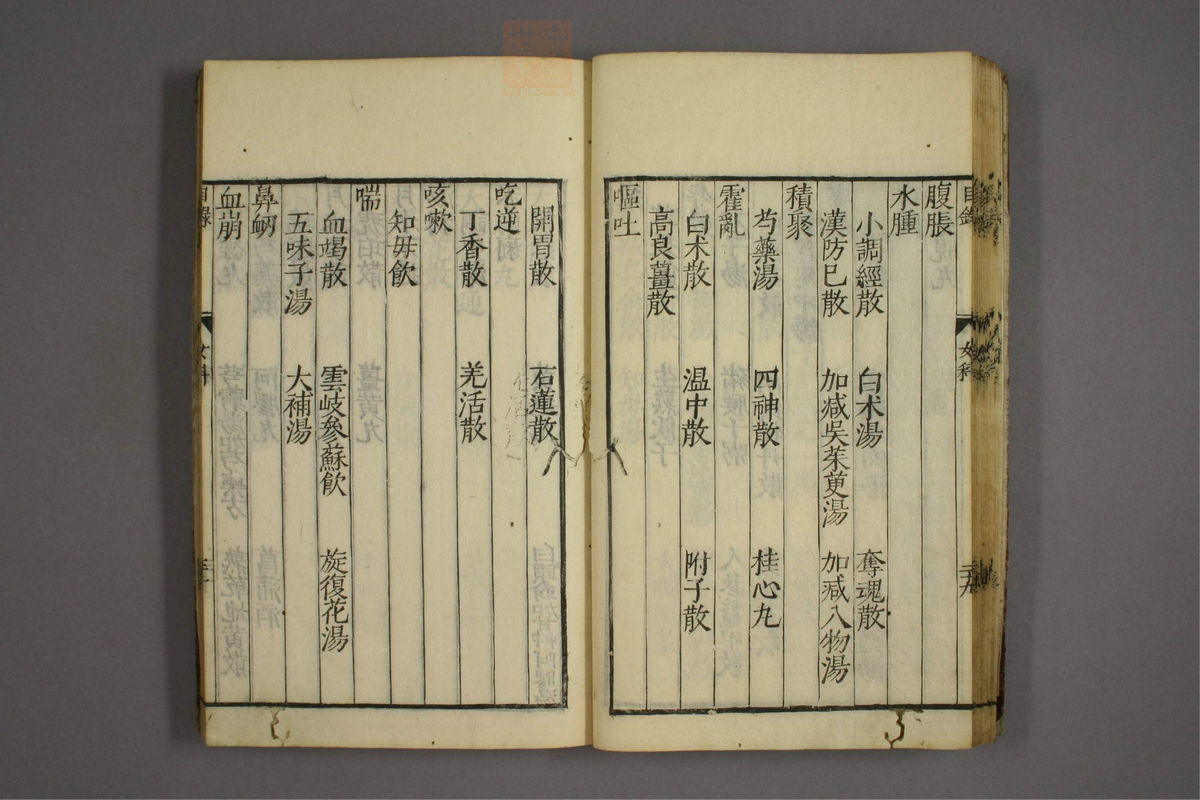 目錄 女科
腹脹
水腫
小調經散 白朮湯 奪魂散
漢防巳散 加减吳茱萸湯 加减八物湯
積聚
芍藥湯 四神散 桂心丸
霍亂
白朮散 温中散 附子散
高良薑散
嘔吐
開胃散 石蓮散
吃逆
丁香散 羌活散
咳嗽
知毋飲
喘
血竭散 雲岐參蘇飲 旋復花湯
五味子湯 大補湯
鼻衂
血崩
目錄 女科